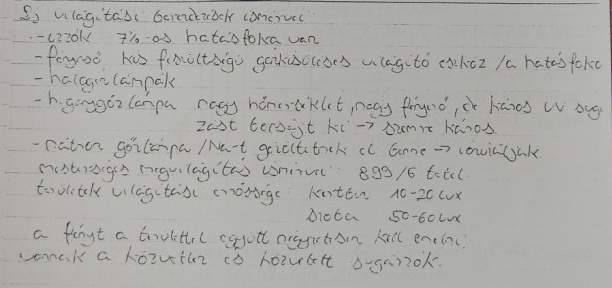 2, világitási berendezések ismérvei
- izzók 7%-os hatásfoka van
- fénycső kis feszültségű gázkisüléses világitó eszköz /a hatásfoka
- halogénlámpák
- higanygőzlámpa nagy hőmérséklet, nagy fényerő, de káros UV sugá
zást bocsájt ki → szemre káros.
- nátrium gőzlámpa /Na-t gőzöltetnek el benne →
mesterséges megvilágitás ismérvei 899/6 tétel
területek világitási erőssége kertben 10-20 lux
50-60 lux
a fényt a területtel együtt négyzetesen kell emelni.
vannak a közvetlen és közvetett sugárzók.